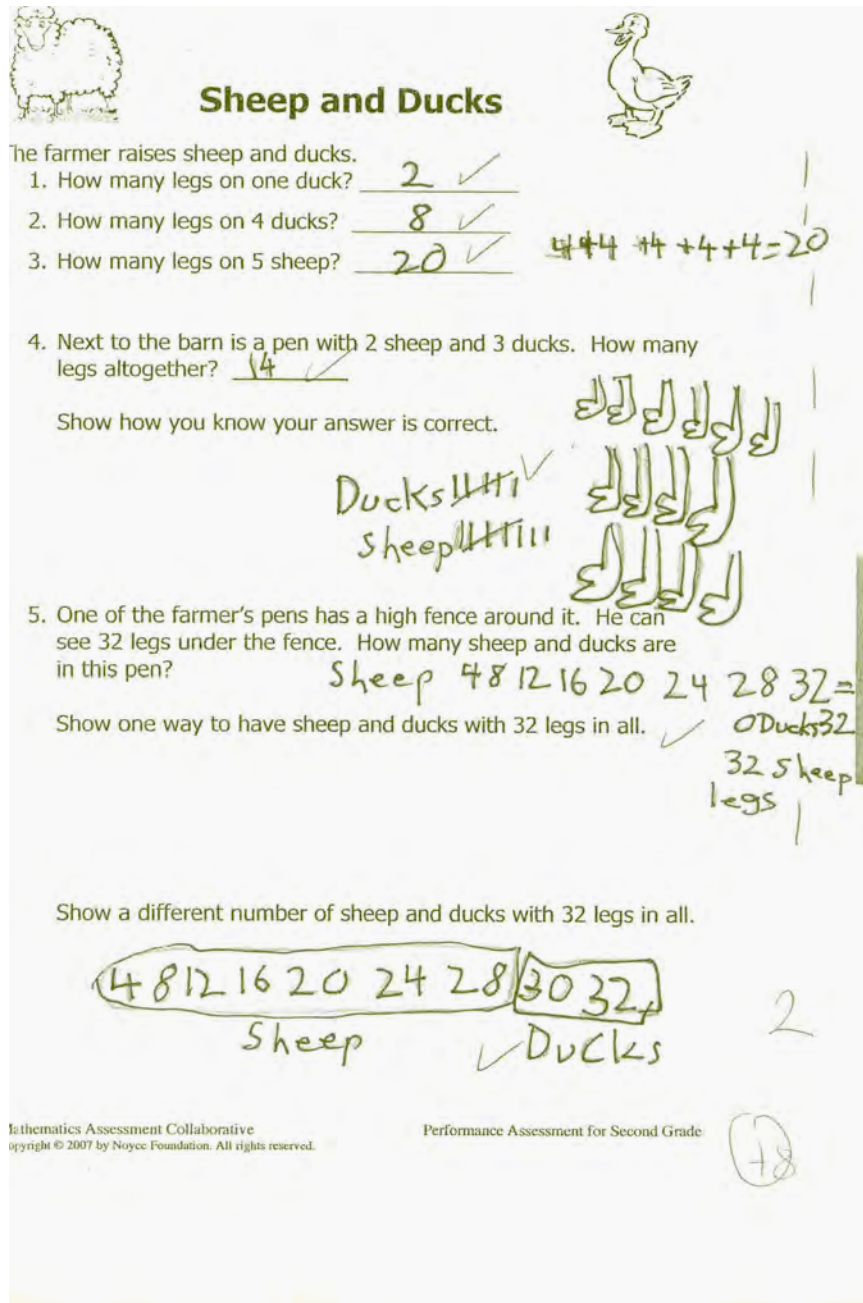 Sheep and Ducks
he farmer raises sheep and ducks.
1. How many legs on one duck? 2
2. How many legs on 4 ducks? 8
4+4+4+4+4=20
3. How many legs on 5 sheep? 20
4. Next to the barn is a pen with 2 sheep and 3 ducks. How many
legs altogether? 14
Show how you know your answer is correct.
Ducks
Sheep
5. One of the farmer's pens has a high fence around it. He can
see 32 legs under the fence. How many sheep and ducks are
in this pen?
Sheep 4 8 12 16 20 24 28 32=
Show one way to have sheep and ducks with 32 legs in all.
0Ducks32
32 Sheep
legs
Show a different number of sheep and ducks with 32 legs in all.
4 8 12 16 20 24 28 30 32
Sheep Ducks
2
athematics Assessment Collaborative
opyright © 2007 by Noyce Foundation. All rights reserved.
Performance Assessment for Second Grade